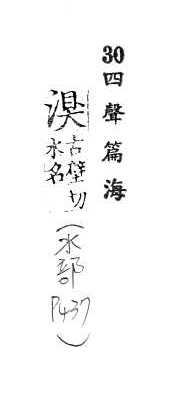 30四聲篇海
湨古壁切
水名
(水部
P437)